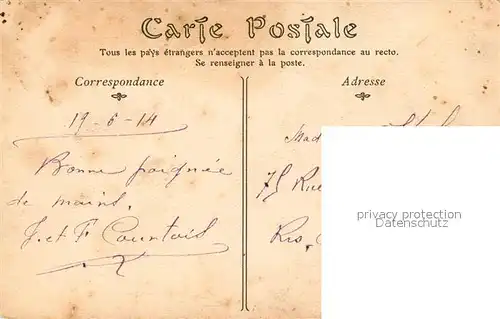 Carte Postale
Tous les pays étrangers n'acceptent pas la correspondance au recto.
Se renseigner à la poste.
Correspondance
Adresse
19-6-14
Bonne poignée
de mains.
J. et F. Courtois
Mad
75 Rue
privacy protection
Datenschutz